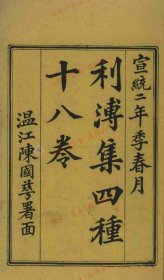 宣統二年季春月
利溥集四種
十八卷
温江陳國華署面